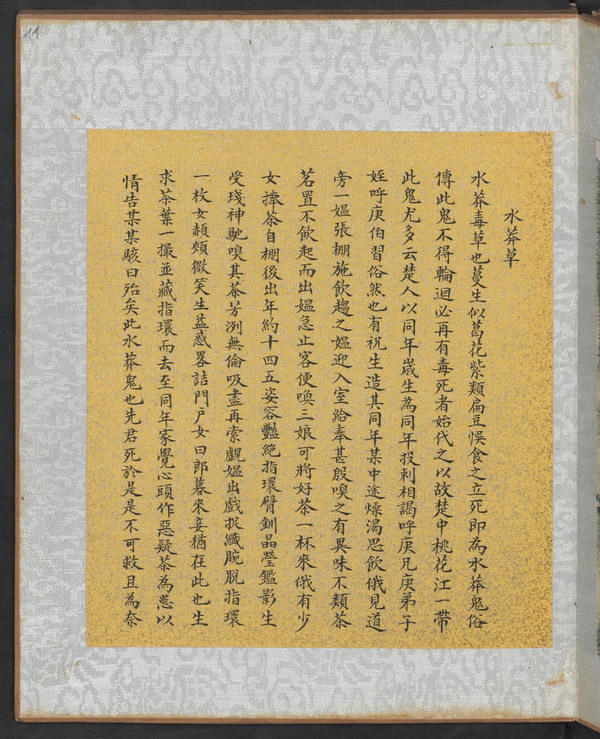 11
水莽草
水莽毒草也蔓生似葛花紫類扁豆悞食之立死即為水莽鬼俗
傳此鬼不得輪迴必再有毒死者始代之以故楚中桃花江一帶
此鬼尤多云楚人以同年嵗生為同年投刺相謁呼庚兄庚弟子
姪呼庚伯習俗然也有祝生造其同年某中途燥渴思飲俄見道
旁一媼張棚施飲趨之媼迎入室給奉甚殷嗅之有異味不類茶
茗置不飲起而出媼急止客便喚三娘可將好茶一杯來俄有少
女捧茶自棚後出年約十四五姿容豔絶指環臂釧晶瑩鑑影生
受琖神馳嗅其茶芳洌無倫吸盡再索覷媼出戲捉纖腕脫指環
一枚女頳頰微笑生益惑畧詰門戶女曰郎暮來妾猶在此也生
求茶葉一撮並藏指環而去至同年家覺心頭作惡疑茶為患以
情告某某駭曰殆矣此水莽鬼也先君死於是是不可救且為奈